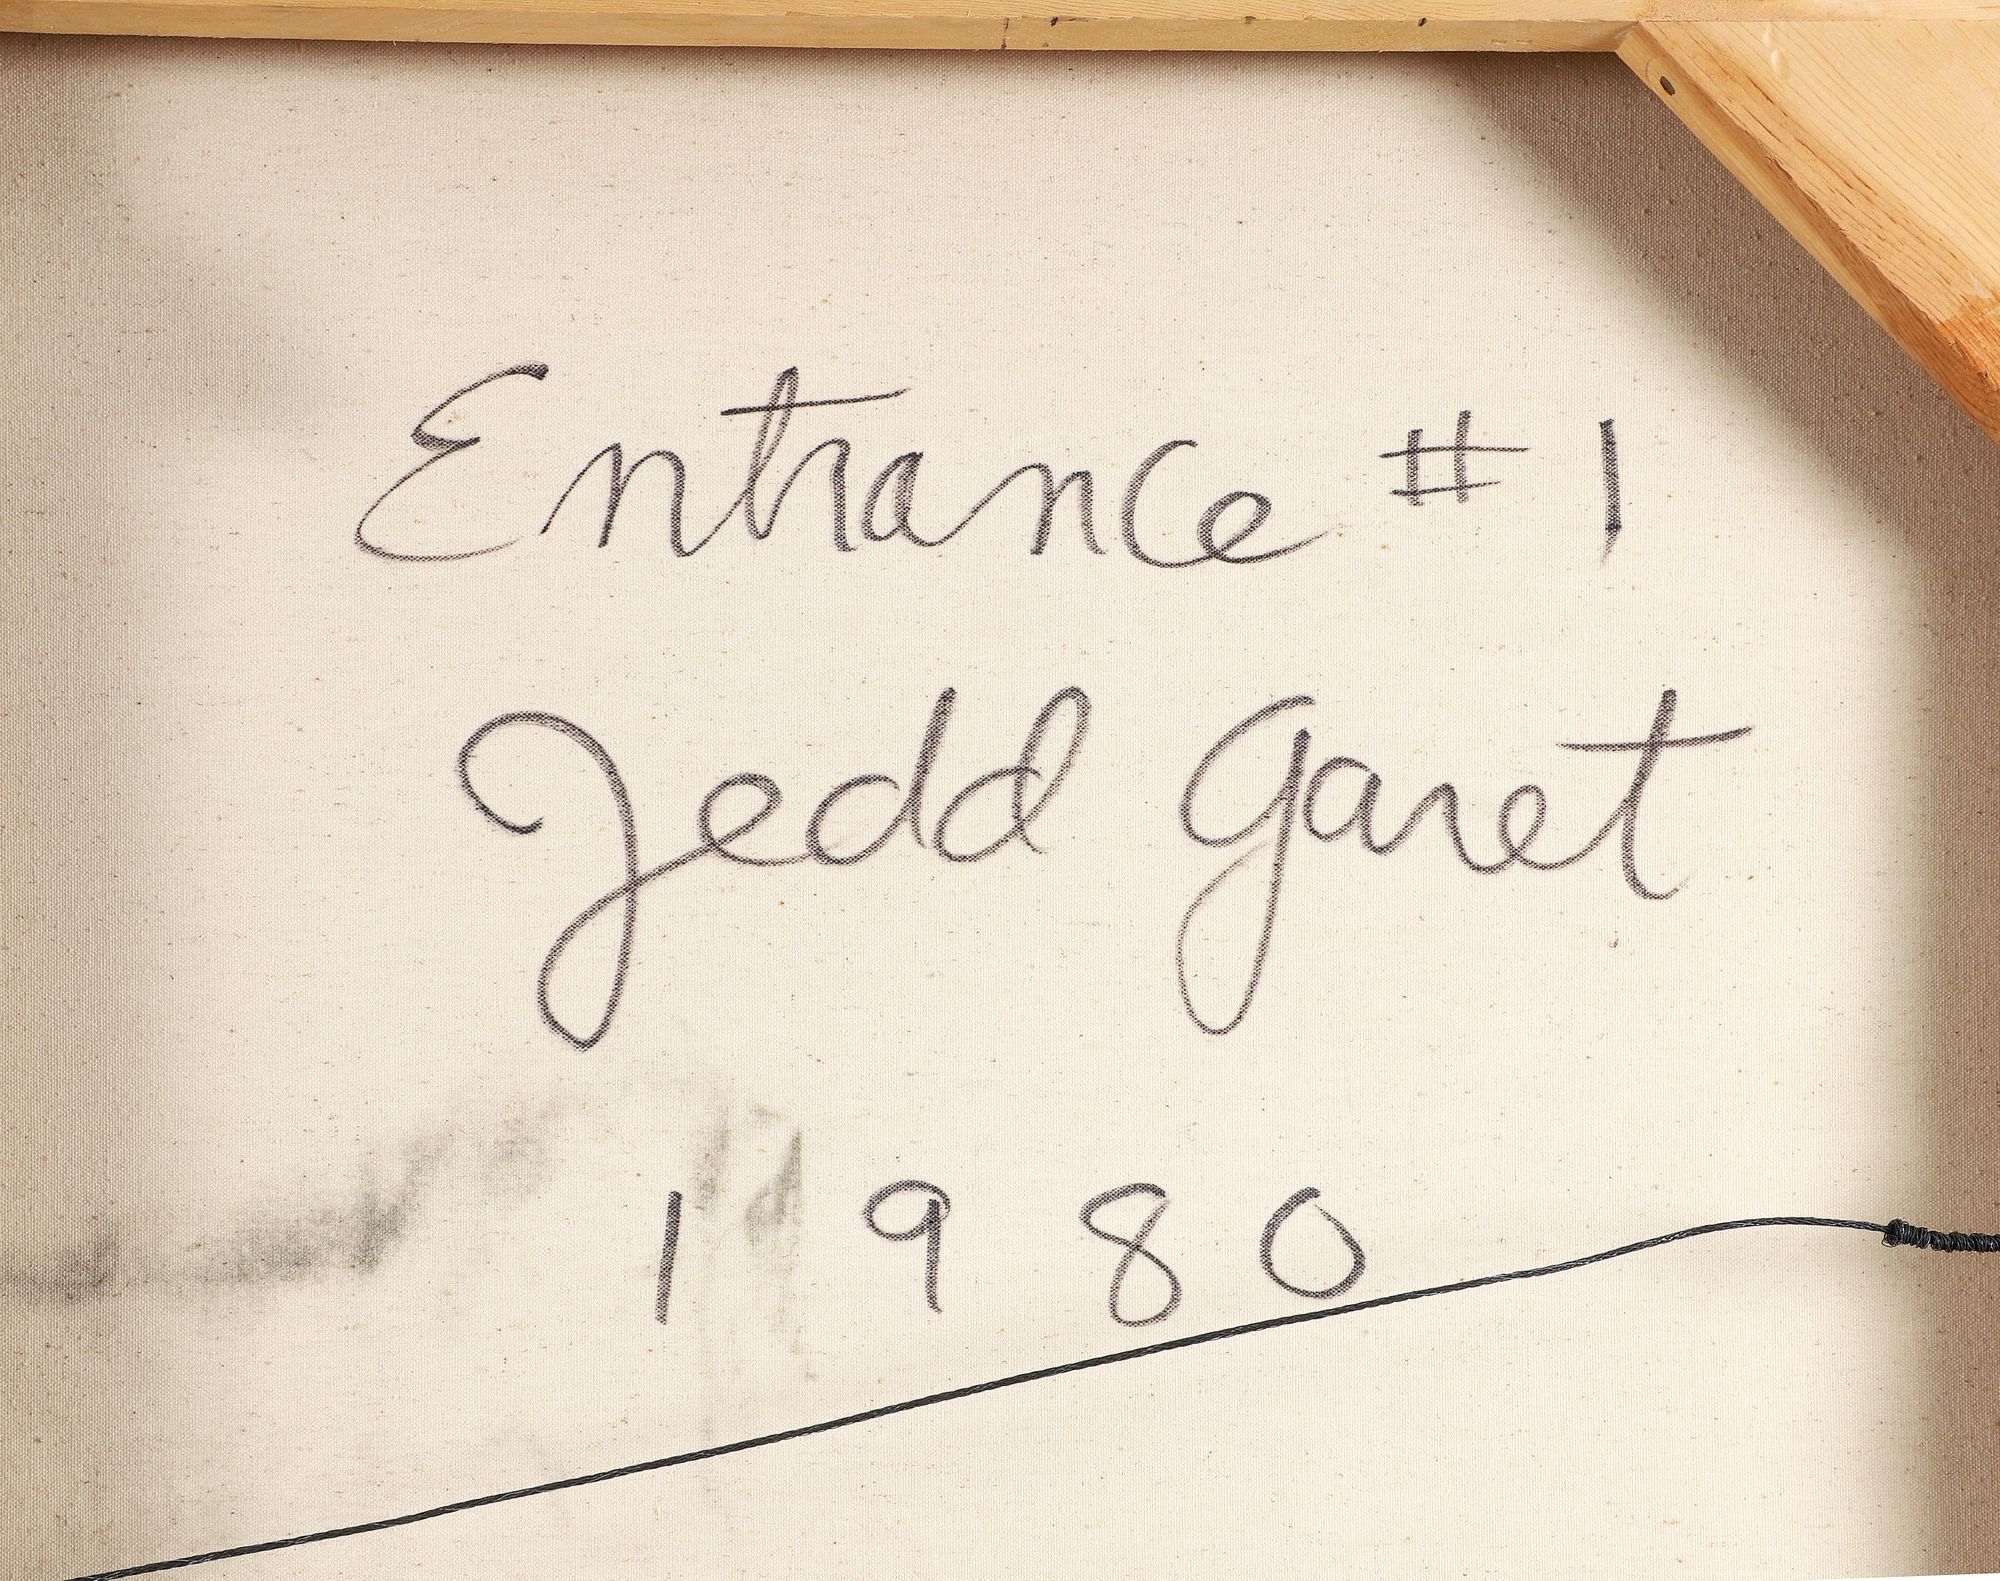 Entrance #1
Jedd Garet
1980